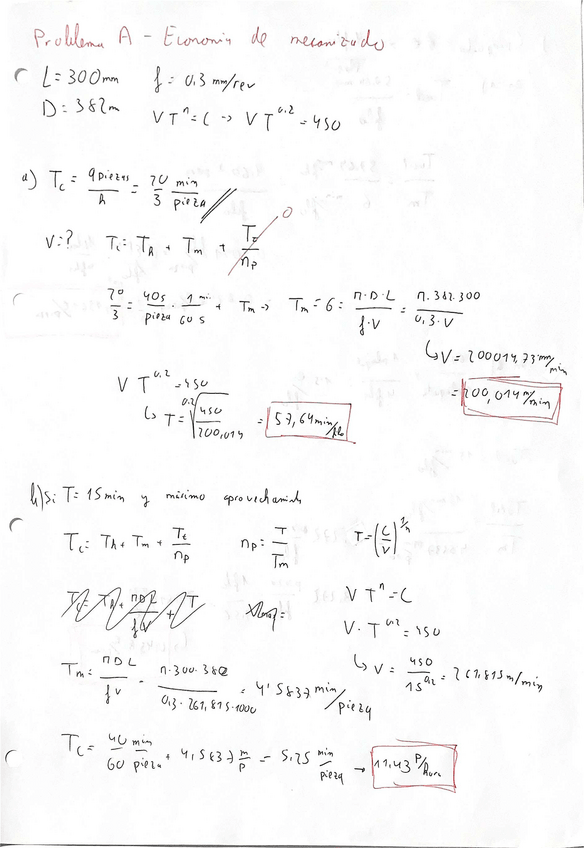 Problema A - Economía de mecanizado
L = 300 mm f = 0,3 mm/rev
D = 382 m V T^n = C → V T^0,2 = 450
a) T_c = 9 piezas/h = 20/3 min/pieza
V = ? T_c = T_h + T_m + T_t/n_p 0
20/3 = 40 s/pieza · 1 min/60 s + T_m → T_m = 6 = π·D·L/f·V = π·382·300/0,3·V
↳ V = 200014,73 mm/min
= 200,014 m/min
V T^0,2 = 450
↳ T = ^0,2√(450/200,014) = 57,64 min/
b) Si T = 15 min y máximo
T_c = T_h + T_m + T_t/n_p n_p = T/T_m T = (C/V)^1/n
V T^n = C
V · T^0,2 = 450
↳ V = 450/15^0,2 = 261,815 m/min
T_m = π D L/f V = π·300·382/0,3·261,815·1000 = 4'5837 min/pieza
T_c = 40 min/60 pieza + 4,5837 m/p = 5,25 min/pieza → 11,43 P/hora